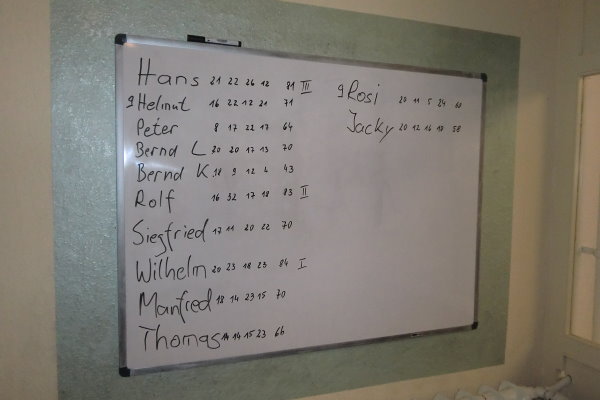 Hans 21 22 26 12 81 III
9 Helmut 16 22 12 21 71
Peter 8 17 22 17 64
Bernd L 20 20 17 13 70
Bernd K 18 9 12 4 43
Rolf 16 32 17 18 83 II
Siegfried 17 11 20 22 70
Wilhelm 20 23 18 23 84 I
Manfred 18 14 23 15 70
Thomas 14 14 15 23 66
9 Rosi 20 11 5 24 60
Jacky 20 12 16 10 58